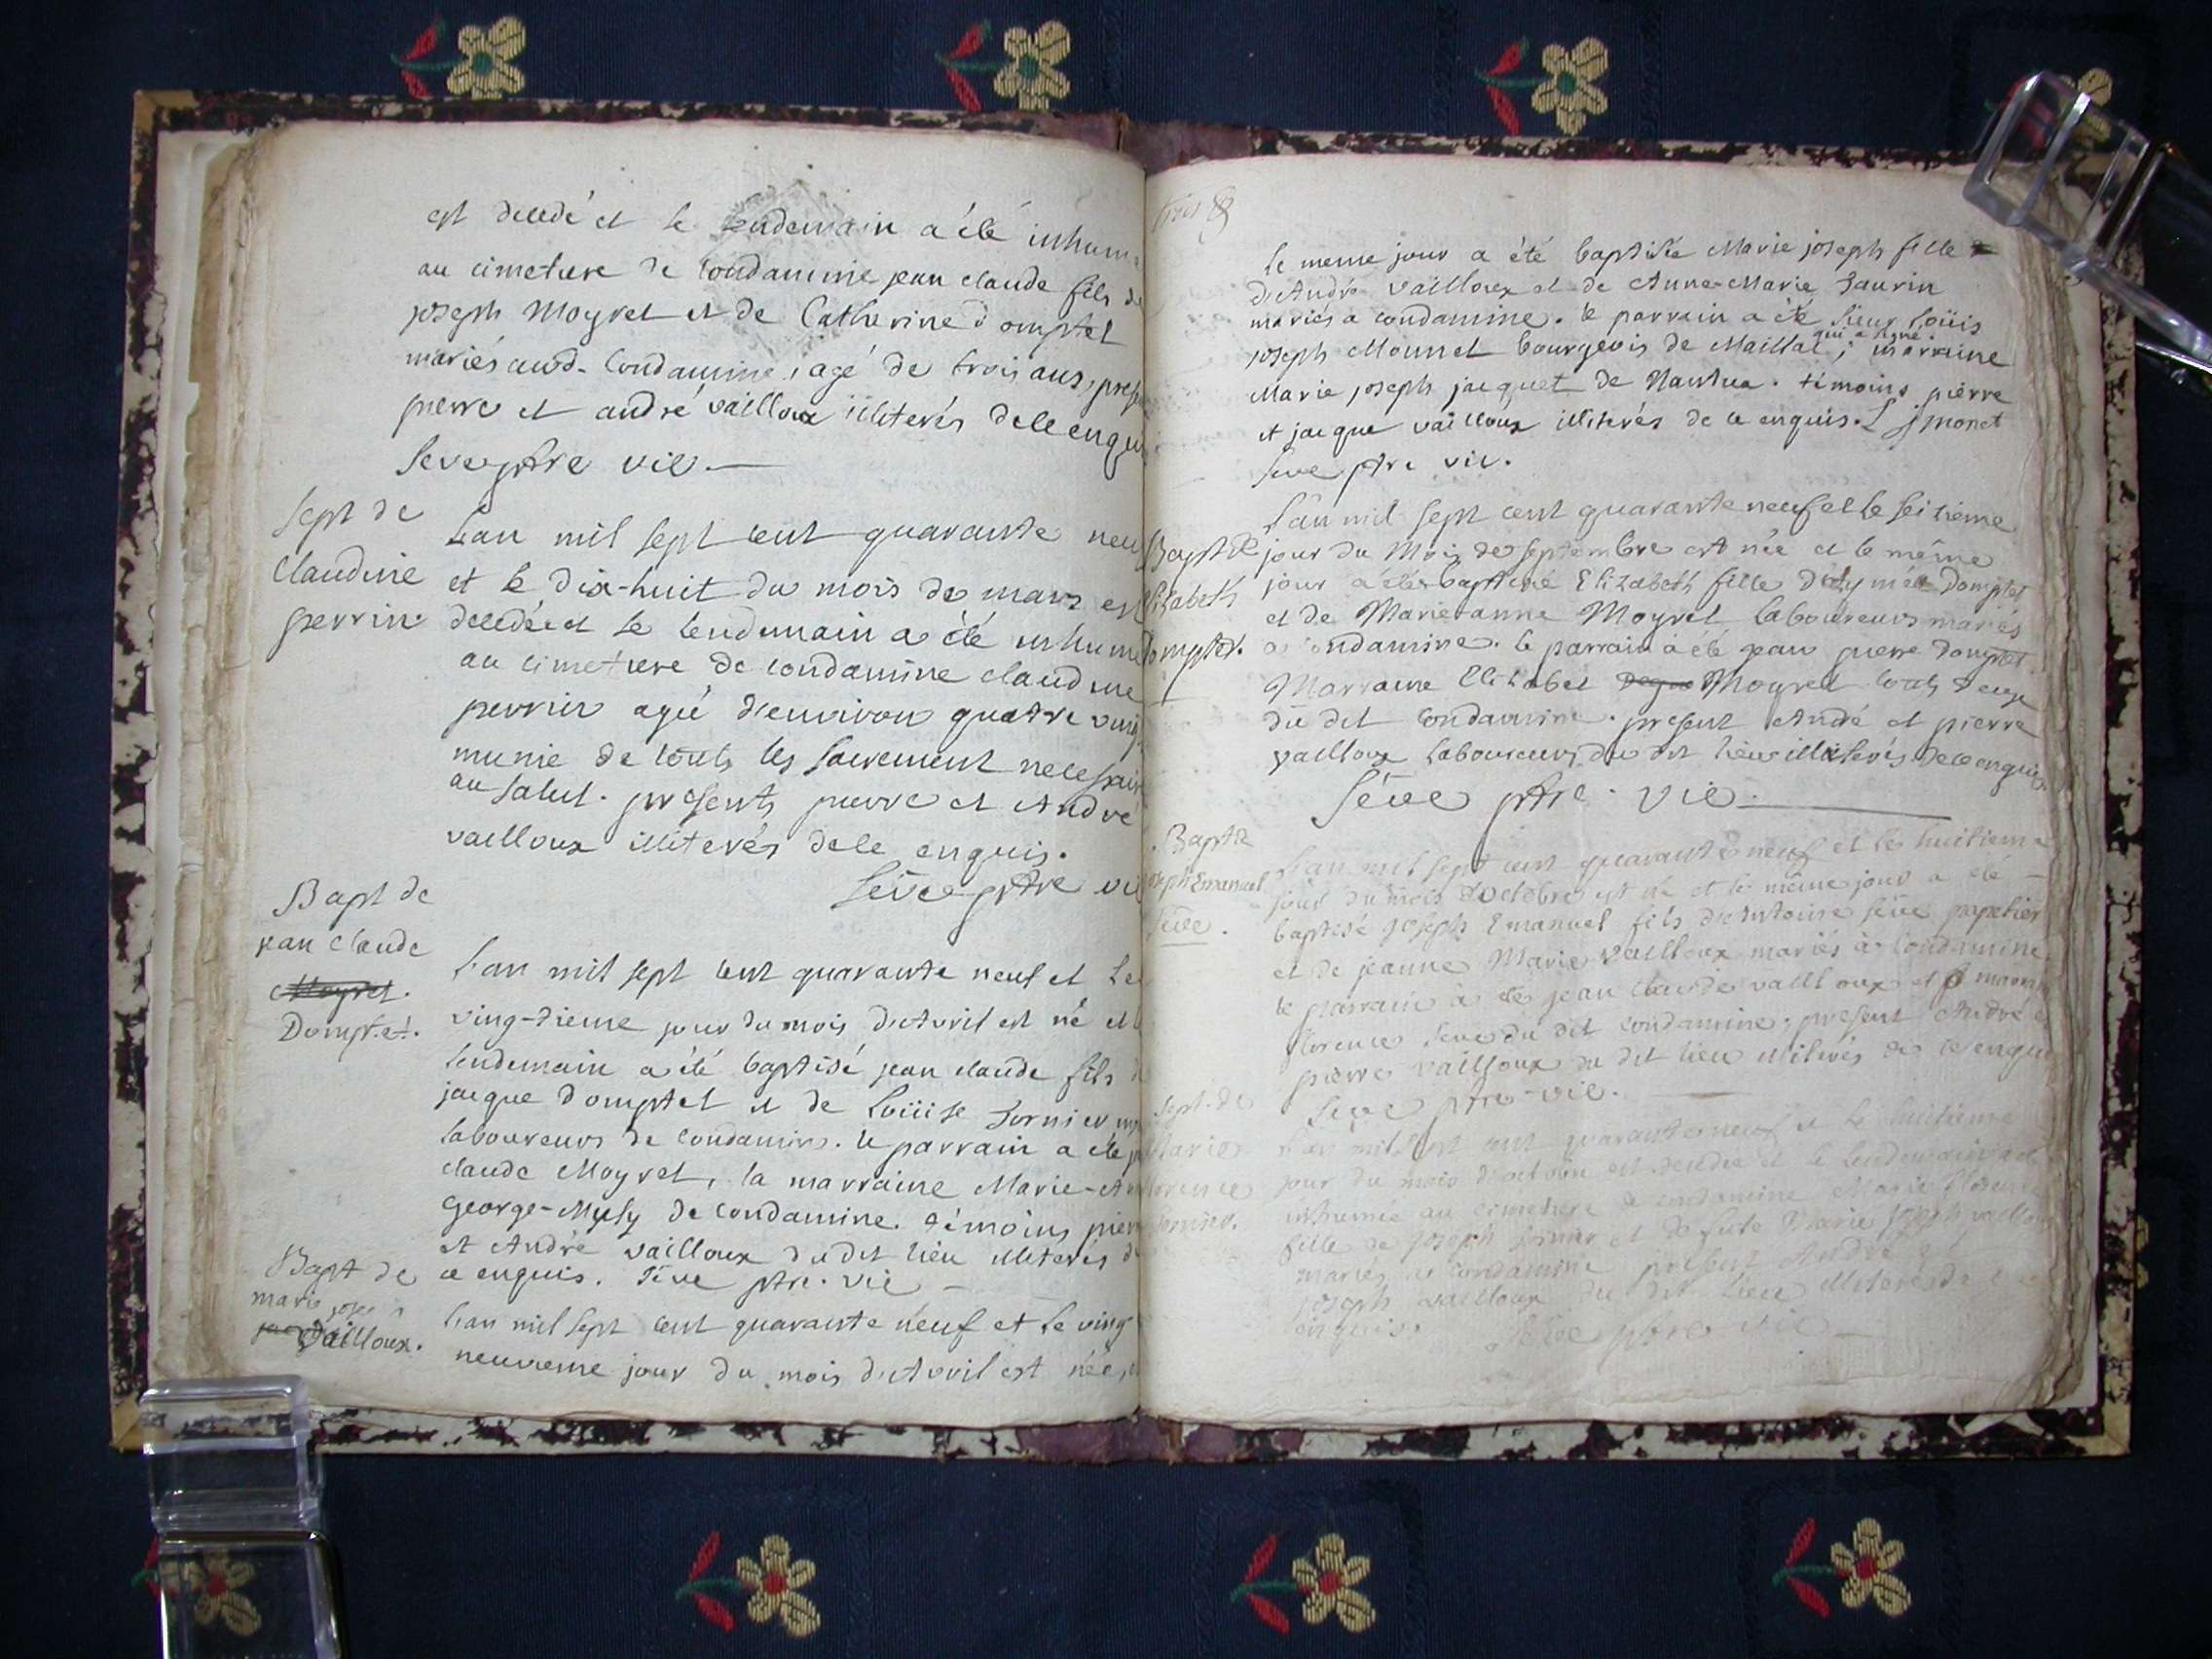 est decedé et le lendemain a été inhumé
au cimetiere de Condamine jean claude fils de
joseph Moyret et de Catherine domptet
mariés aud. Condamine, agé de trois ans, present
pierre et andré vailloux illiterés de ce enquis
Seve ptre vic.
Sept de
Claudine
perrin
Lan mil sept cent quarante neuf
et le dix-huit du mois de mars est
decedée et le lendemain a été inhumé
au cimetiere de condamine claudine
perrin agée d'environ quatre vingt
munie de touts les sacrement necessair
au salut. presents pierre et André
vailloux illiterés de ce enquis.
Séve ptre vic
Bapt de
jean claude
Moyret.
Domptet.
L'an mil sept cent quarante neuf et le
ving-tieme jour du mois d'Avril est né et le
lendemain a été baptisé jean claude fils de
jacque domptet et de Loüise Jornier
laboureurs de condamine. le parrain a été
claude Moyret, la marraine Marie-
george-Musy de condamine. témoins pierre
et André vailloux du dit lieu illiterés de
ce enquis. Séve ptre. vic
Bapt de
marie joseph
vailloux.
L'an mil sept cent quarante neuf et le ving
neuvieme jour du mois d'Avril est née, et
le meme jour a été baptisée Marie joseph fille
d'André vailloux et de Anne-Marie Jaurin
mariés a condamine. le parrain a été sieur Loüis
joseph Monnet bourgeois de Maillat qui a signé; marraine
Marie joseph jacquet de Nantua. témoins pierre
et jacque vailloux illiterés de ce enquis. L J monet
Seve ptre vic.
Bapt de
Elizabeth
Domptet.
L'an mil sept cent quarante neuf et le seizieme
jour du Mois de septembre est née et le même
jour a été baptisée Elizabeth fille Domptet
et de Marie-anne Moyret laboureurs mariés
a Condamine. le parrain a été jean pierre Domptet
Marraine Elizabet Moyret touts deux
du dit Condamine. present André et pierre
vailloux laboureurs du dit lieu illiterés de ce enquis
Séve ptre. vic.
Bapt de
joseph Emanuel
Séve.
L'an mil sept cent quarante neuf et le huitieme
jour du mois d'octobre est né et le même jour a été
baptisé joseph Emanuel fils d'Antoine Séve papetier
et de jeanne Marie vailloux mariés à Condamine
le parrain à été jean claude vailloux et marraine
florence Seve du dit Condamine; present André et
pierre vailloux du dit lieu illiterés de ce enquis
Seve ptre-vic.
Sept. de
Marie
florence
Jornier.
L'an mil sept cent quarante neuf et le huitieme
jour du mois d'octobre est decedée et le lendemain a été
inhumée au cimetiere de condamine Marie florence
fille de joseph Jornier et de Marie joseph vailloux
mariés a Condamine present André et
joseph vailloux du dit lieu illiterés de ce
enquis. Séve ptre vic